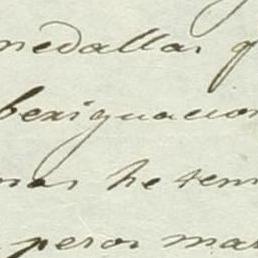 medallas q
beriguacion
mas he ten
peros mas